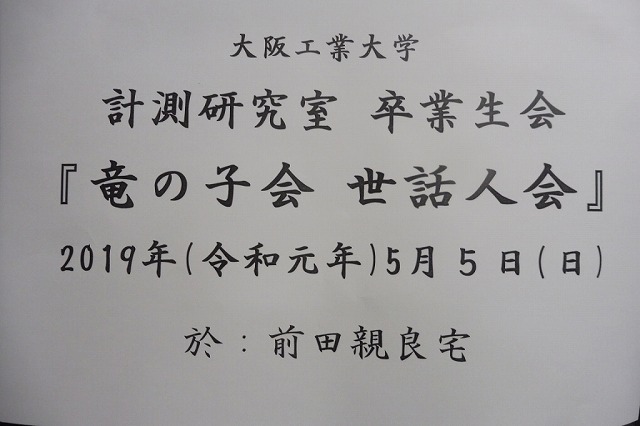 大阪工業大学
計測研究室 卒業生会
『竜の子会 世話人会』
2019年(令和元年)5月5日(日)
於:前田親良宅